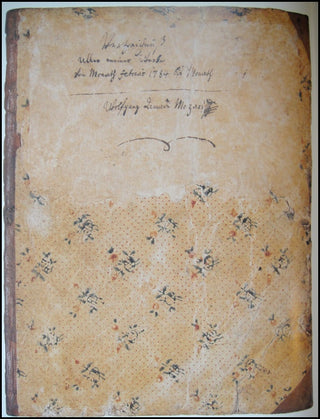 Verzeichnüß
aller meiner Werke
vom Monath febrario 1784 bis Monath
Wolfgang Amadé Mozart